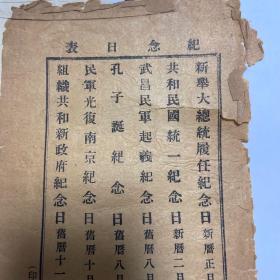 紀念日表
新舉大總統履任紀念日新曆正月
共和民國統一紀念日新曆二月
武昌民軍起義紀念日舊曆八月
孔子誕紀念日舊曆八月
民軍光復南京紀念日舊曆十月
組織共和新政府紀念日舊曆十一
(印